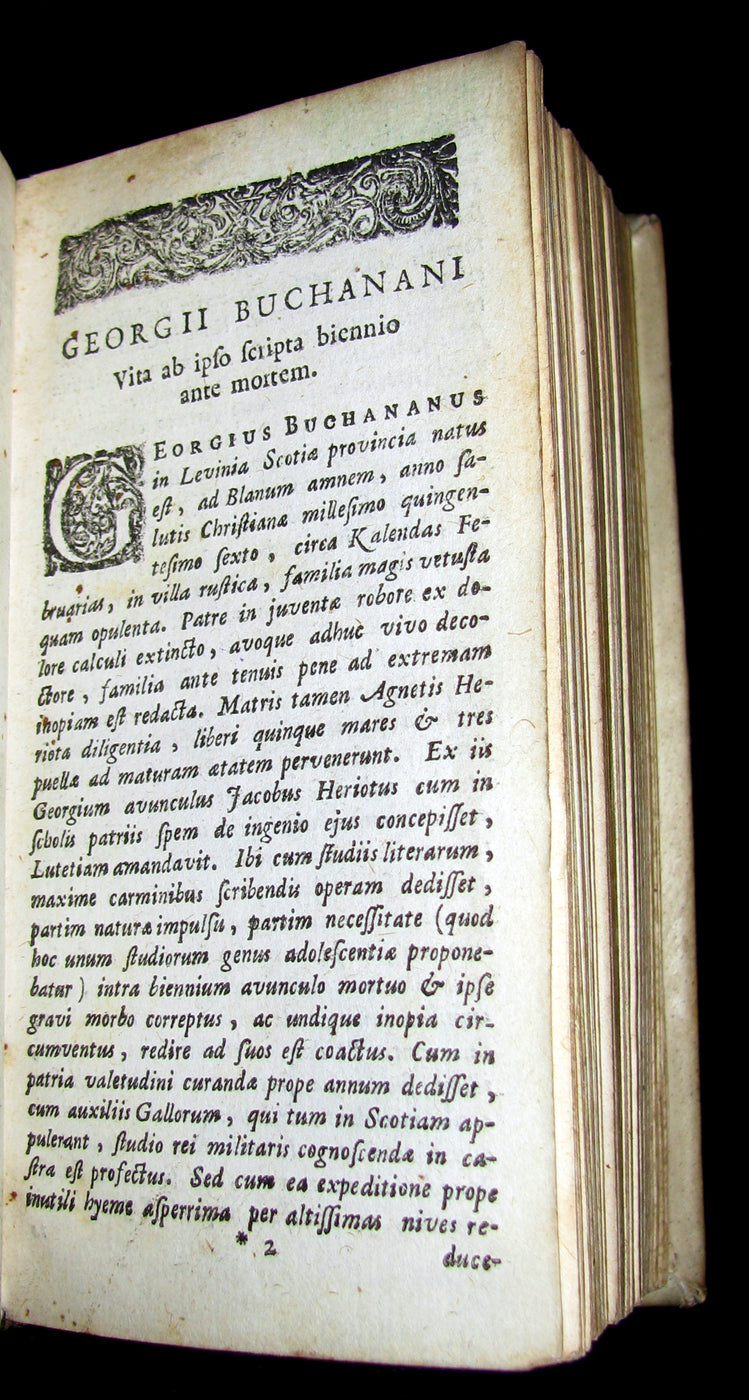 GEORGII BUCHANANI
Vita ab ipſo ſcripta biennio
ante mortem.
GEORGIUS BUCHANANUS
in Levinia Scotiæ provincia natus
eſt, ad Blanum amnem, anno ſa-
lutis Chriſtianæ milleſimo quingen-
teſimo ſexto, circa Kalendas Fe-
bruarias, in villa ruſtica, familia magis vetuſta
quam opulenta. Patre in juventæ robore ex do-
lore calculi extincto, avoque adhuc vivo deco-
ctore, familia ante tenuis pene ad extremam
inopiam eſt redacta. Matris tamen Agnetis He-
riotæ diligentia, liberi quinque mares & tres
puellæ ad maturam ætatem pervenerunt. Ex iis
Georgium avunculus Jacobus Heriotus cum in
ſcholis patriis ſpem de ingenio ejus concepiſſet,
Lutetiam amandavit. Ibi cum ſtudiis literarum,
maxime carminibus ſcribendis operam dediſſet,
partim naturæ impulſu, partim neceſſitate (quod
hoc unum ſtudiorum genus adoleſcentiæ propone-
batur) intra biennium avunculo mortuo & ipſe
gravi morbo correptus, ac undique inopia cir-
cumventus, redire ad ſuos eſt coactus. Cum in
patria valetudini curandæ prope annum dediſſet,
cum auxiliis Gallorum, qui tum in Scotiam ap-
pulerant, ſtudio rei militaris cognoſcendæ in ca-
ſtra eſt profectus. Sed cum ea expeditione prope
inutili hyeme aſperrima per altiſſimas nives re-
* 2
duce-